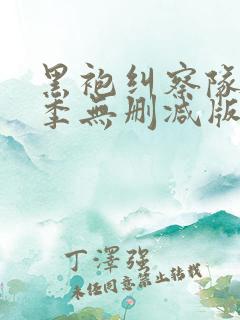 黑袍纠察队
季無删减版
丁澤强
未经同意禁止转载